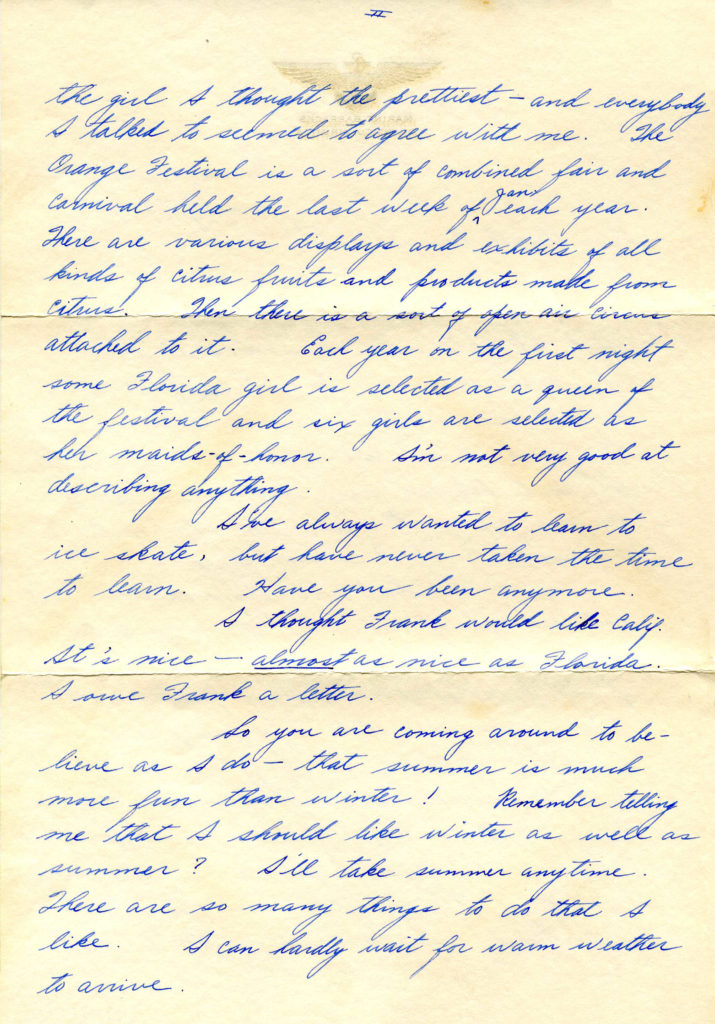 II
the girl I thought the prettiest — and everybody
I talked to seemed to agree with me. The
Orange Festival is a sort of combined fair and
carnival held the last week of ^Jan. each year.
There are various displays and exhibits of all
kinds of citrus fruits and products made from
citrus. Then there is a sort of open air circus
attached to it. Each year on the first night
some Florida girl is selected as a queen of
the festival and six girls are selected as
her maids-of-honor. I'm not very good at
describing anything.
I've always wanted to learn to
ice skate, but have never taken the time
to learn. Have you been anymore.
I thought Frank would like Calif.
It's nice — almost as nice as Florida.
I owe Frank a letter.
So you are coming around to be-
lieve as I do — that summer is much
more fun than winter! Remember telling
me that I should like winter as well as
summer? I'll take summer anytime.
There are so many things to do that I
like. I can hardly wait for warm weather
to arrive.